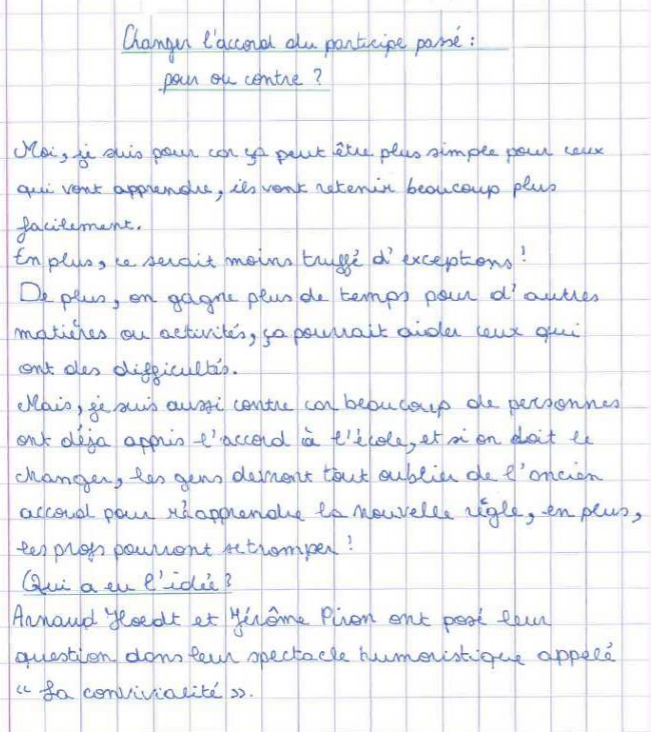 Changer l'accord du participe passé :
pour ou contre ?
Moi, je suis pour car ça peut être plus simple pour ceux
qui vont apprendre, ils vont retenir beaucoup plus
facilement.
En plus, ce serait moins truffé d'exceptions !
De plus, on gagne plus de temps pour d'autres
matières ou activités, ça pourrait aider ceux qui
ont des difficultés.
Mais, je suis aussi contre car beaucoup de personnes
ont déja appris l'accord à l'école, et si on doit le
changer, les gens devront tout oublier de l'ancien
accord pour réapprendre la nouvelle règle, en plus,
les profs pourront se tromper !
Qui a eu l'idée ?
Arnaud Hoedt et Jérôme Piron ont posé leur
question dans leur spectacle humoristique appelé
« La convivialité ».